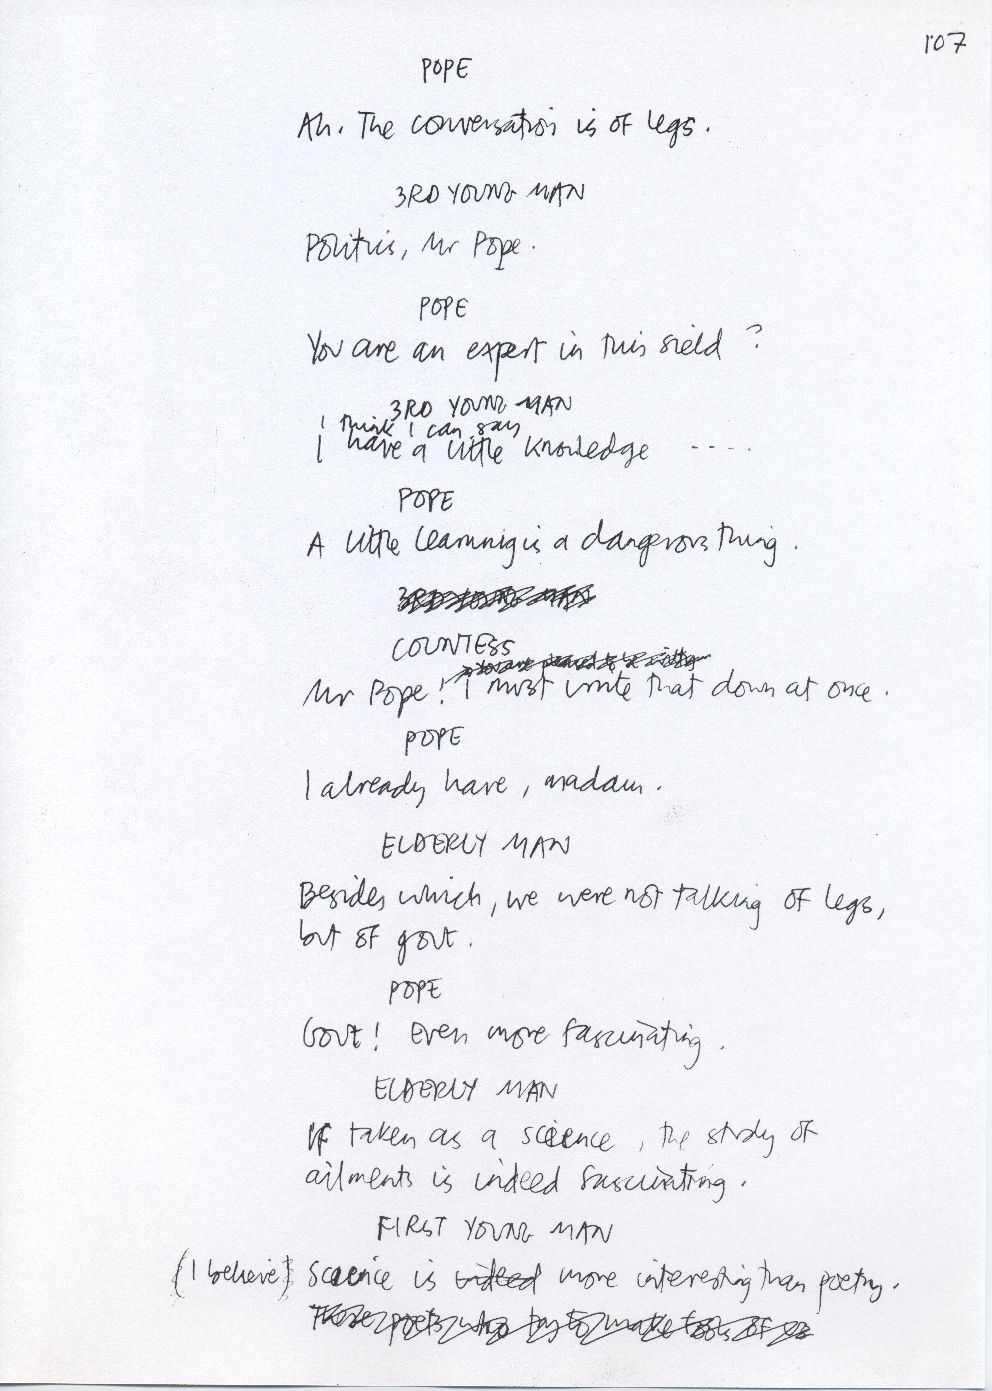 107
POPE
Ah. The conversation is of legs.
3RD YOUNG MAN
Politics, Mr Pope.
POPE
You are an expert in this field?
3RD YOUNG MAN
I think I can say
I have a little knowledge ....
POPE
A little learning is a dangerous thing.
3RD YOUNG MAN
COUNTESS
Mr Pope! I must write that down at once.
POPE
I already have, madam.
ELDERLY MAN
Besides which, we were not talking of legs,
but of gout.
POPE
Gout! Even more fascinating.
ELDERLY MAN
If taken as a science, the study of
ailments is indeed fascinating.
FIRST YOUNG MAN
(I believe) Science is indeed more interesting than poetry.
Those poets who try to make fools of us